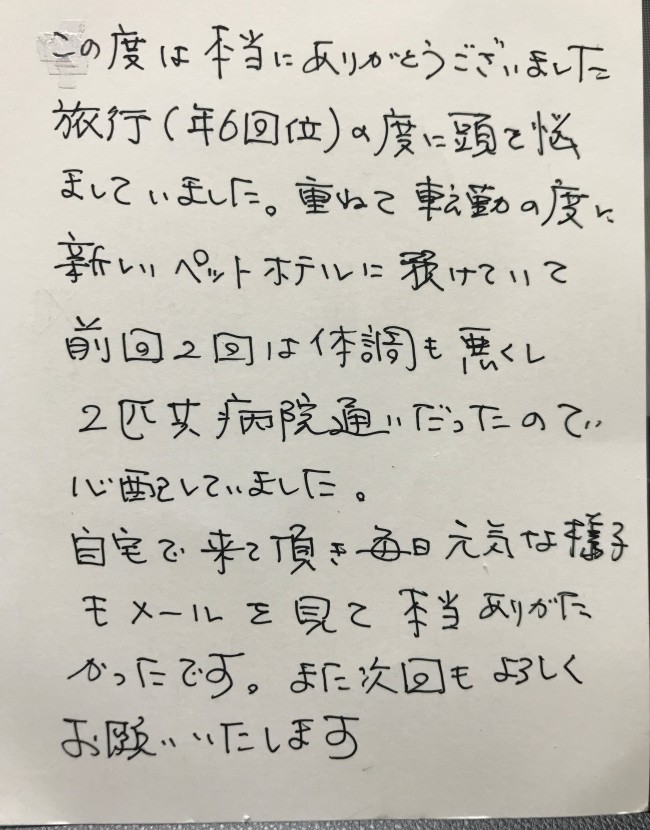 この度は本当にありがとうございました
旅行(年6回位)の度に頭を悩
ましていました。重ねて転勤の度に
新しいペットホテルに預けていて
前回2回は体調も悪くし
2匹共病院通いだったので
心配していました。
自宅で来て頂き毎日元気な様子
もメールを見て本当ありがた
かったです。また次回もよろしく
お願いいたします